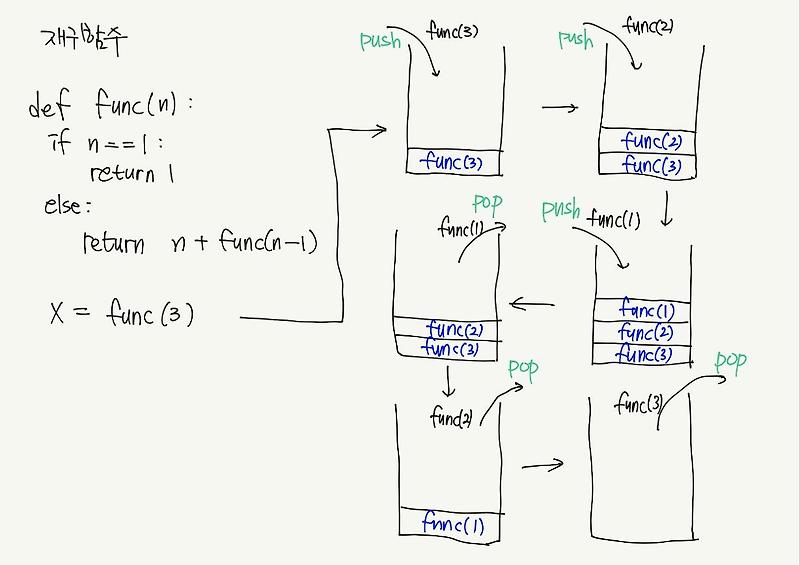 재귀함수
def func(n):
if n==1:
return 1
else:
return n + func(n-1)
X = func(3)
push
func(3)
func(3)
push
func(2)
func(2)
func(3)
push
func(1)
func(1)
func(2)
func(3)
pop
func(1)
func(2)
func(3)
pop
func(2)
func(1)
pop
func(3)